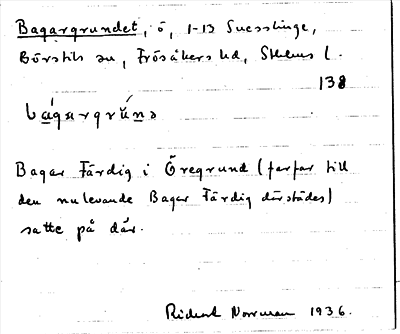 Bagargrundet, ö, 1-13 Snesslinge,
Börstils sn, Frösåkers hd, Sthlms l.
138
bágargrúnd
Bagar Färdig i Öregrund (farfar till
den nulevande Bagar Färdig därstädes)
satte på där.
Rickard Norrman 1936.